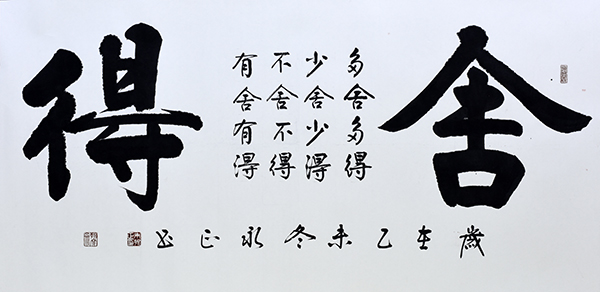 舍得
多舍多得
少舍少得
不舍不得
有舍有得
歲在乙未冬永正书